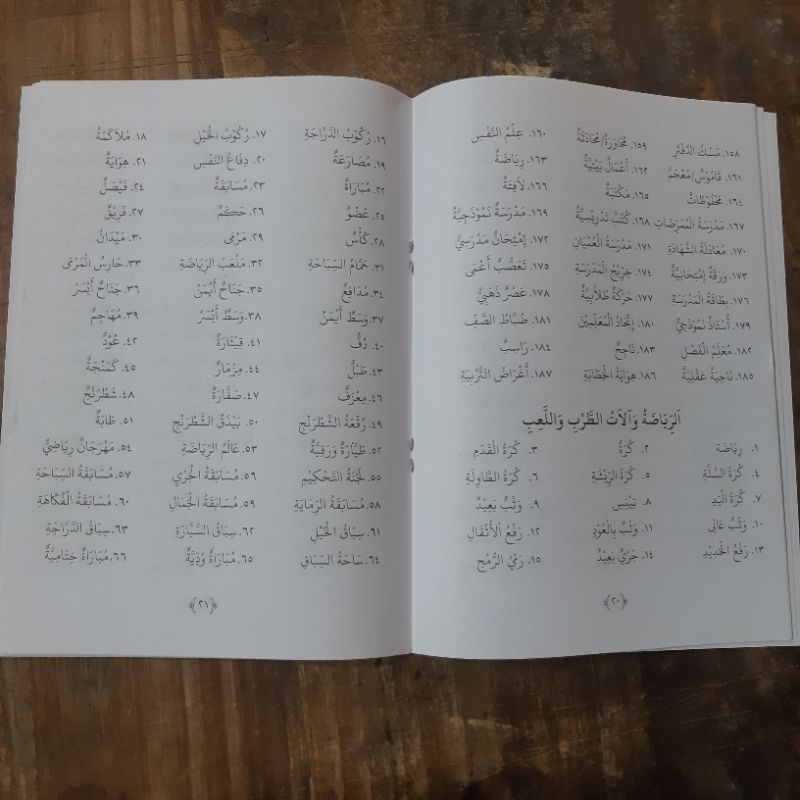 ١٥٨. مَسْكُ الدَّفْتَرِ ١٥٩. مُحَاوَرَةٌ/مُحَادَثَةٌ ١٦٠. عِلْمُ النَّفْسِ
١٦١. قَامُوْسٌ/مُعْجَمٌ ١٦٢. أَعْمَالٌ بَيْتِيَّةٌ ١٦٣. رِيَاضَةٌ
١٦٤. مَحْفُوْظَاتٌ ١٦٥. مَكْتَبَةٌ ١٦٦. لَافِتَةٌ
١٦٧. مَدْرَسَةُ الْمُمَرِّضَاتِ ١٦٨. كُتُبٌ تَدْرِيْسِيَّةٌ ١٦٩. مَدْرَسَةٌ نَمُوْذَجِيَّةٌ
١٧٠. مُعَادَلَةُ الشَّهَادَةِ ١٧١. مَدْرَسَةُ الْعُمْيَانِ ١٧٢. إِمْتِحَانٌ مَدْرَسِيٌّ
١٧٣. وَرَقَةٌ إِمْتِحَانِيَّةٌ ١٧٤. خَرِيْجُ الْمَدْرَسَةِ ١٧٥. تَعَصُّبٌ أَعْمَى
١٧٦. بِطَاقَةُ الْمَدْرَسَةِ ١٧٧. حَرَكَةٌ طُلَّابِيَّةٌ ١٧٨. عَصْرٌ ذَهَبِيٌّ
١٧٩. أُسْتَاذٌ نَمُوْذَجِيٌّ ١٨٠. إِتِّحَادُ الْمُعَلِّمِيْنَ ١٨١. ضُبَّاطُ الصَّفِّ
١٨٢. مُعَلِّمُ الْفَصْلِ ١٨٣. نَاجِحٌ ١٨٤. رَاسِبٌ
١٨٥. نَاحِيَةٌ عَقْلِيَّةٌ ١٨٦. هِوَايَةُ الْخِطَابَةِ ١٨٧. أَغْرَاضُ التَّرْبِيَةِ
اَلرِّيَاضَةُ وَآلَاتُ الطَّرْبِ وَاللَّعِبِ
١. رِيَاضَةٌ ٢. كُرَةٌ ٣. كُرَةُ الْقَدَمِ
٤. كُرَةُ السَّلَّةِ ٥. كُرَةُ الرِّيْشَةِ ٦. كُرَةُ الطَّاوِلَةِ
٧. كُرَةُ الْيَدِ ٨. تِيْنِسْ ٩. وَثْبٌ بَعِيْدٌ
١٠. وَثْبٌ عَالِى ١١. وَثْبٌ بِالْعُوْدِ ١٢. رَفْعُ الْأَثْقَالِ
١٣. رَفْعُ الْحَدِيْدِ ١٤. جَرْيٌ بَعِيْدٌ ١٥. رَمْيُ الرُّمْحِ
﴿٢٠﴾
١٦. رُكُوْبُ الدَّرَّاجَةِ ١٧. رُكُوْبُ الْخَيْلِ ١٨. مُلَاكَمَةٌ
١٩. مُصَارَعَةٌ ٢٠. دِفَاعُ النَّفْسِ ٢١. هِوَايَةٌ
٢٢. مُبَارَاةٌ ٢٣. مُسَابَقَةٌ ٢٤. فَيْصَلٌ
٢٥. عُضْوٌ ٢٦. حَكَمٌ ٢٧. فَرِيْقٌ
٢٨. كَأْسٌ ٢٩. مَرْمَى ٣٠. مَيْدَانٌ
٣١. حَمَّامُ السِّبَاحَةِ ٣٢. مَلْعَبُ الرِّيَاضَةِ ٣٣. حَارِسُ الْمَرْمَى
٣٤. مُدَافِعٌ ٣٥. جَنَاحٌ أَيْمَنُ ٣٦. جَنَاحٌ أَيْسَرُ
٣٧. وَسَطٌ أَيْمَنُ ٣٨. وَسَطٌ أَيْسَرُ ٣٩. مُهَاجِمٌ
٤٠. دُفٌّ ٤١. قِيْتَارَةٌ ٤٢. عُوْدٌ
٤٣. طَبْلٌ ٤٤. مِزْمَارٌ ٤٥. كَمَنْجَةٌ
٤٦. مِعْزَفٌ ٤٧. صَفَّارَةٌ ٤٨. شَطْرَنْجٌ
٤٩. رُقْعَةُ الشَّطْرَنْجِ ٥٠. بَيْذَقُ الشَّطْرَنْجِ ٥١. طَابَةٌ
٥٢. طَيَّارَةٌ وَرَقِيَّةٌ ٥٣. عَالَمُ الرِّيَاضَةِ ٥٤. مَهْرَجَانٌ رِيَاضِيٌّ
٥٥. لَجْنَةُ التَّحْكِيْمِ ٥٦. مُسَابَقَةُ الْجَرْيِ ٥٧. مُسَابَقَةُ السِّبَاحَةِ
٥٨. مُسَابَقَةُ الرِّمَايَةِ ٥٩. مُسَابَقَةُ الْجَمَالِ ٦٠. مُسَابَقَةُ الْفُكَاهَةِ
٦١. سِبَاقُ الْخَيْلِ ٦٢. سِبَاقُ السَّيَّارَةِ ٦٣. سِبَاقُ الدَّرَّاجَةِ
٦٤. سَاحَةُ السِّبَاقِ ٦٥. مُبَارَاةٌ وُدِّيَّةٌ ٦٦. مُبَارَاةٌ خِتَامِيَّةٌ
﴿٢١﴾